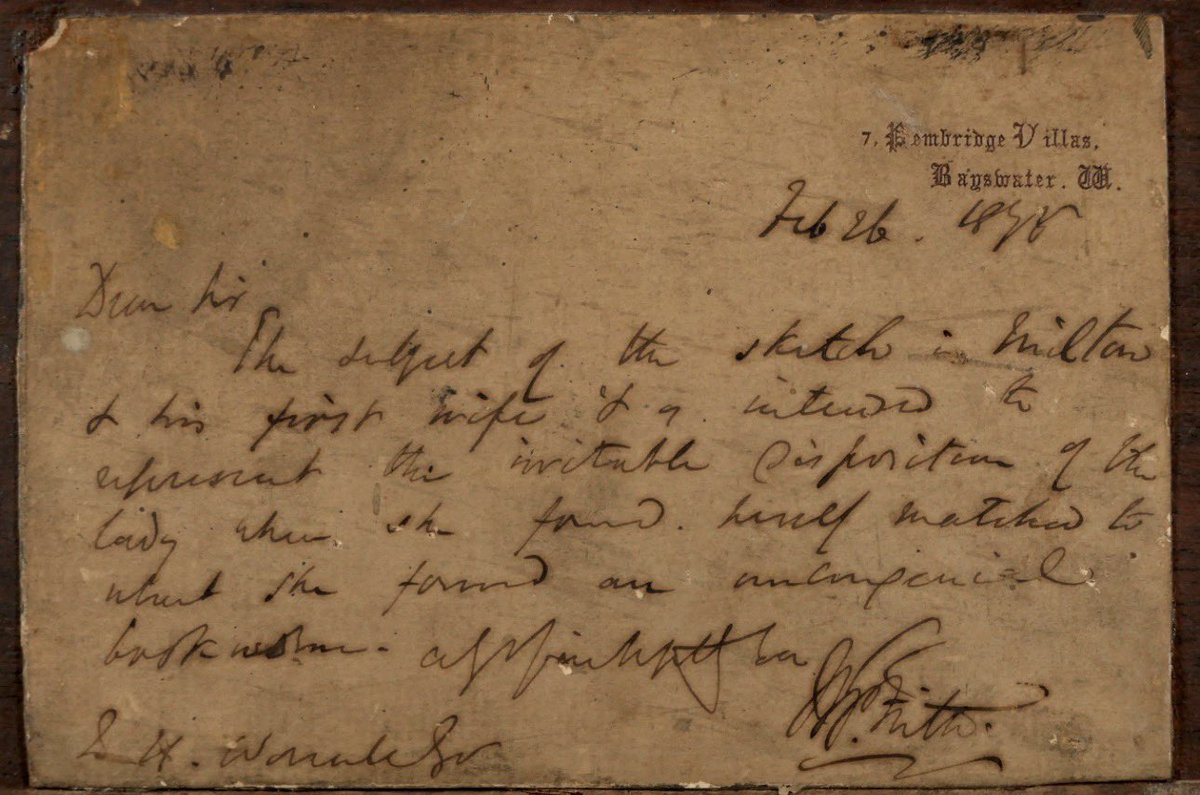 7, Pembridge Villas,
Bayswater. W.
Feb 26. 1878
Dear Sir
The subject of the sketch is Milton
& his first wife & is intended to
represent the irritable disposition of the
lady when she found herself matched to
what she found an uncongenial
bookworm.
W P. Frith.